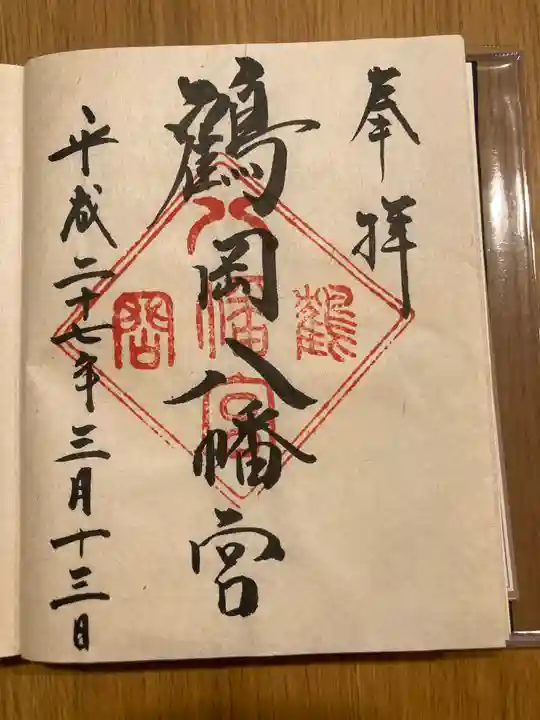 奉拝
鶴岡八幡宮
平成二十七年三月十三日
鶴
八幡宮
岡